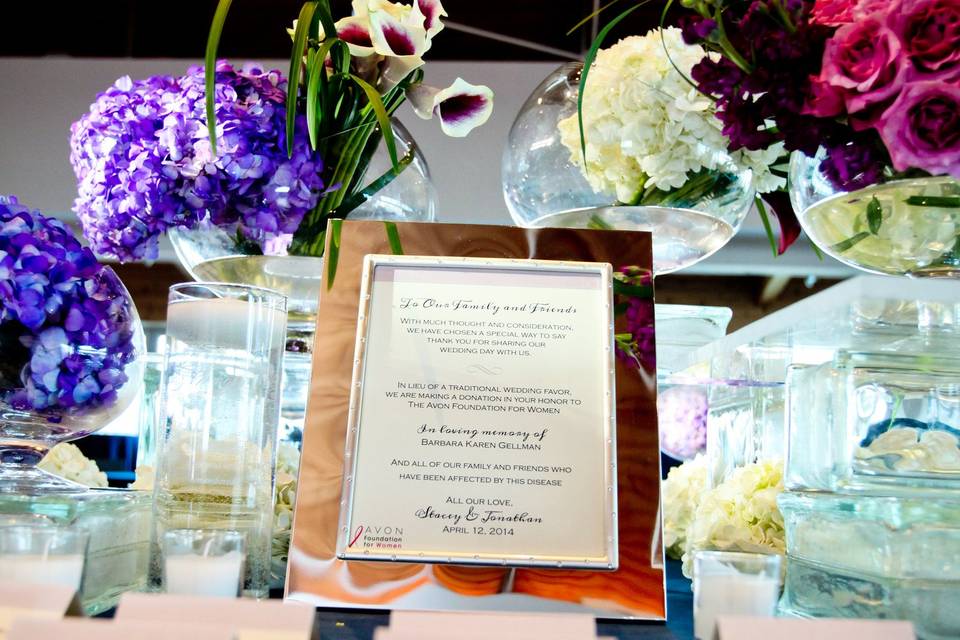 To Our Family and Friends
With much thought and consideration,
we have chosen a special way to say
thank you for sharing our
wedding day with us.
In lieu of a traditional wedding favor,
we are making a donation in your honor to
The Avon Foundation for Women
In loving memory of
Barbara Karen Gellman
And all of our family and friends who
have been affected by this disease
All our love,
Stacey & Jonathan
April 12, 2014
AVON
Foundation
for Women